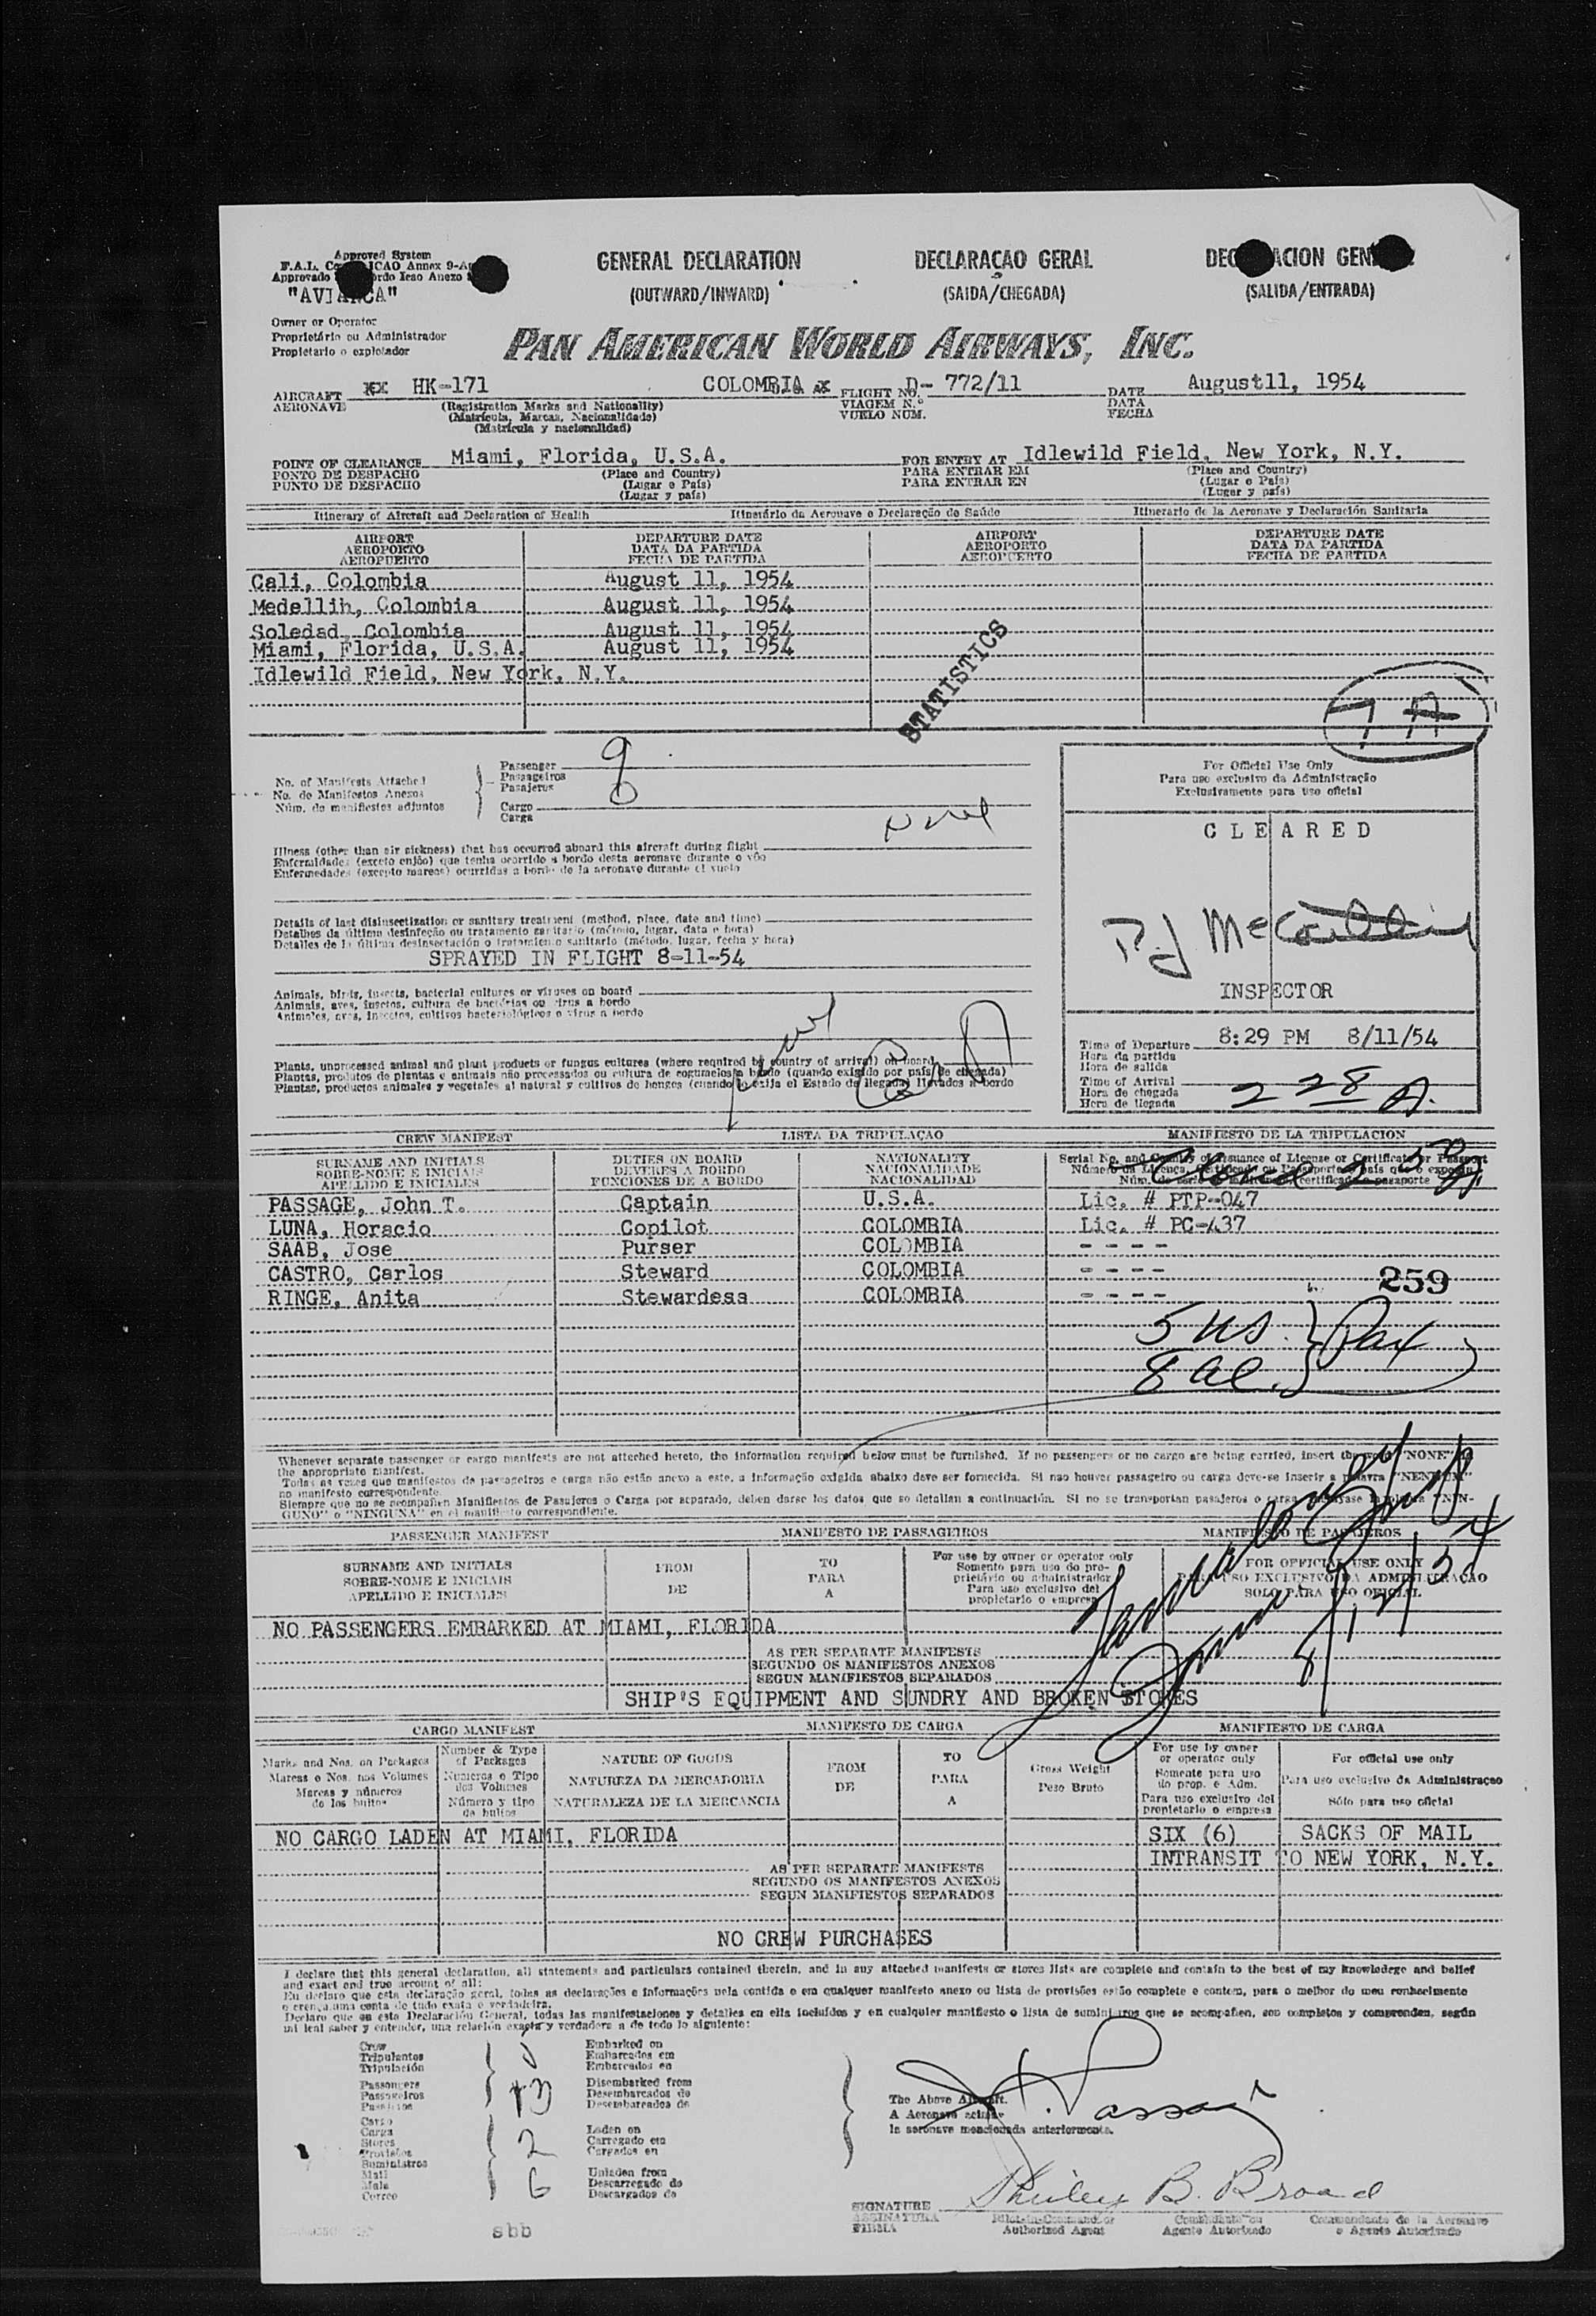 Approved System
F.A.L. ICAO Annex 9-
Approvado Icao Anexo
"AVIANCA"
GENERAL DECLARATION
(OUTWARD/INWARD)
DECLARAÇAO GERAL
(SAIDA/CHEGADA)
(SALIDA/ENTRADA)
Owner or Operator
Proprietário ou Administrador
Propietario o explotador
PAN AMERICAN WORLD AIRWAYS, INC.
AIRCRAFT HK-171 COLOMBIA FLIGHT NO. D- 772/11 DATE August11, 1954
AERONAVE (Registration Marks and Nationality) VIAGEM N.º DATA
(Matrícula, Marcas, Nacionalidade) VUELO NUM. FECHA
(Matrícula y nacionalidad)
POINT OF CLEARANCE Miami, Florida, U.S.A. FOR ENTRY AT Idlewild Field, New York, N.Y.
PONTO DE DESPACHO (Place and Country) PARA ENTRAR EM (Place and Country)
PUNTO DE DESPACHO (Lugar e País) PARA ENTRAR EN (Lugar e País)
(Lugar y país) (Lugar y país)
Itinerary of Aircraft and Declaration of Health Itinerário da Aeronave e Declaração de Saúde Itinerario de la Aeronave y Declaración Sanitaria
AIRPORT DEPARTURE DATE AIRPORT DEPARTURE DATE
AEROPORTO DATA DA PARTIDA AEROPORTO DATA DA PARTIDA
AEROPUERTO FECHA DE PARTIDA AEROPUERTO FECHA DE PARTIDA
Cali, Colombia August 11, 1954
Medellin, Colombia August 11, 1954
Soledad, Colombia August 11, 1954
Miami, Florida, U.S.A. August 11, 1954
Idlewild Field, New York, N.Y.
STATISTICS
7 A
No. of Manifests Attached
No. de Manifestos Anexos
Núm. de manifiestos adjuntos
Passenger
Passageiros
Pasajeros
Cargo
Carga
For Official Use Only
Para uso exclusivo da Administração
Exclusivamente para uso oficial
CLEARED
Illness (other than air sickness) that has occurred aboard this aircraft during flight
Enfermidades (exceto enjôo) que tenha ocorrido a bordo desta aeronave durante o vôo
Enfermedades (excepto mareos) ocurridas a bordo de la aeronave durante el vuelo
Details of last disinsectization or sanitary treatment (method, place, date and time)
Detalhes da última desinfeção ou tratamento sanitario (método, lugar, data e hora)
Detalles de la última desinsectación o tratamiento sanitario (método, lugar, fecha y hora)
SPRAYED IN FLIGHT 8-11-54
INSPECTOR
Animals, birds, insects, bacterial cultures or viruses on board
Animais, aves, insetos, cultura de bactérias ou virus a bordo
Animales, aves, insectos, cultivos bacteriológicos o virus a bordo
Time of Departure 8:29 PM 8/11/54
Hora da partida
Hora de salida
Time of Arrival 2 28 A.
Hora de chegada
Hora de llegada
Plants, unprocessed animal and plant products or fungus cultures (where required by country of arrival) on board
Plantas, produtos de plantas e animais não processados ou cultura de cogumelos a bordo (quando exigido por país de chegada)
Plantas, productos animales y vegetales al natural y cultivos de hongos (cuando lo exija el Estado de llegada) llevados a bordo
CREW MANIFEST LISTA DA TRIPULAÇAO MANIFIESTO DE LA TRIPULACION
SURNAME AND INITIALS DUTIES ON BOARD NATIONALITY
SOBRE-NOME E INICIAIS DEVERES A BORDO NACIONALIDADE
APELLIDO E INICIALES FUNCIONES DE A BORDO NACIONALIDAD
PASSAGE, John T. Captain U.S.A. Lic. # PTP-047
LUNA, Horacio Copilot COLOMBIA Lic. # PC-437
SAAB, Jose Purser COLOMBIA - - - -
CASTRO, Carlos Steward COLOMBIA - - - -
259
RINGE, Anita Stewardess COLOMBIA - - - -
5 US. } Pax
8 al.
Whenever separate passenger or cargo manifests are not attached hereto, the information required below must be furnished. If no passengers or no cargo are being carried, insert the word "NONE" in
the appropriate manifest.
Todas as vezes que manifestos de passageiros e carga não estão anexo a este, a informação exigida abaixo deve ser fornecida. Si nao houver passageiro ou carga deve-se inserir a palavra "NENHUM"
no manifesto correspondente.
Siempre que no se acompañen Manifiestos de Pasajeros o Carga por separado, deben darse los datos que se detallan a continuación. Si no se transportan pasajeros o carga "NIN-
GUNO" o "NINGUNA" en el manifiesto correspondiente.
PASSENGER MANIFEST MANIFESTO DE PASSAGEIROS MANIFIESTO DE PASAJEROS
SURNAME AND INITIALS FROM TO For use by owner or operator only FOR OFFICIAL USE ONLY
SOBRE-NOME E INICIAIS DE PARA Somente para uso do proprietário ou administrador
APELLIDO E INICIALES A Para uso exclusivo del propietario o empresa SOLO PARA USO OFICIAL
8/12/54
NO PASSENGERS EMBARKED AT MIAMI, FLORIDA
AS PER SEPARATE MANIFESTS
SEGUNDO OS MANIFESTOS ANEXOS
SEGUN MANIFIESTOS SEPARADOS
SHIP'S EQUIPMENT AND SUNDRY AND BROKEN STORES
CARGO MANIFEST MANIFESTO DE CARGA MANIFIESTO DE CARGA
Marks and Nos. on Packages Number & Type of Packages NATURE OF GOODS FROM TO Gross Weight For use by owner or operator only For official use only
Marcas e Nos. nos Volumes Numeros e Tipo dos Volumes NATUREZA DA MERCADORIA DE PARA Peso Bruto Somente para uso do prop. e Adm. Para uso exclusivo da Administraçao
Marcas y números de los bultos Número y tipo de bultos NATURALEZA DE LA MERCANCIA A Para uso exclusivo del propietario o empresa Sólo para uso oficial
NO CARGO LADEN AT MIAMI, FLORIDA SIX (6) SACKS OF MAIL
INTRANSIT TO NEW YORK, N.Y.
AS PER SEPARATE MANIFESTS
SEGUNDO OS MANIFESTOS ANEXOS
SEGUN MANIFIESTOS SEPARADOS
NO CREW PURCHASES
I declare that this general declaration, all statements and particulars contained therein, and in any attached manifests or stores lists are complete and contain to the best of my knowledege and belief
and exact and true account of all:
Eu declaro que esta declaração geral, todas as declarações e informações nela contida e em qualquer manifesto anexo ou lista de provisões estão complete e contem, para o melhor do meu conhecimento
e crença uma conta de tudo exata e verdadeira.
Declaro que en esta Declaración General, todas las manifestaciones y detalles en ella incluídos y en cualquier manifiesto o lista de suministros que se acompañen, son completos y comprenden, según
mi leal saber y entender, una relación exacta y verdadera a de todo lo siguiente:
Crew Embarked on
Tripulantes Embarcados em
Tripulación Embarcados en
Passengers 13 Disembarked from
Passageiros Desembarcados do
Pasajeros Desembarcados de
Cargo
Carga Laden on
Stores 2 Carregado em
Provisões Cargados en
Suministros
Mail 6 Unladen from
Mala Descarregado do
Correo Descargados de
The Above Aircraft.
A Aeronave acima
la aeronave mencionada anteriormente.
J. T. Passage
Shirley B. Broad
SIGNATURE
ASSINATURA
FIRMA
Pilot-in-Command or Authorized Agent
Comandante ou Agente Autorizado
Comandante de la Aeronave o Agente Autorizado
sbb